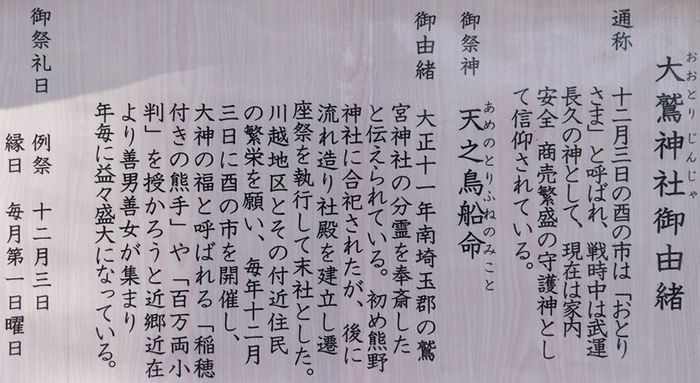 大鷲神社御由緒
おおとりじんじゃ
通称
十二月三日の酉の市は「おとり
さま」と呼ばれ、戦時中は武運
長久の神として、現在は家内
安全 商売繁盛の守護神とし
て信仰されている。
御祭神 天之鳥船命
あめのとりふねのみこと
御由緒 大正十一年南埼玉郡の鷲
宮神社の分霊を奉斎した
と伝えられている。初め熊野
神社に合祀されたが、後に
流れ造り社殿を建立し遷
座祭を執行して末社とした。
川越地区とその付近住民
の繁栄を願い、毎年十二月
三日に酉の市を開催し、
大神の福と呼ばれる「稲穂
付きの熊手」や「百万両小
判」を授かろうと近郷近在
より善男善女が集まり
年毎に益々盛大になっている。
御祭礼日 例祭 十二月三日
縁日 毎月第一日曜日